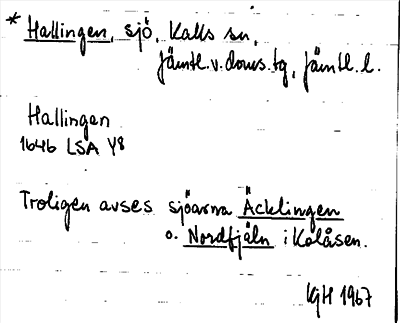 * Hallingen, sjö, Kalls sn,
Jämtl. v. doms. tg, Jämtl. l.
Hallingen
1646 LSA Y8
Troligen avses sjöarna Äcklingen
o. Nordfjäln i Kolåsen.
KjH 1967